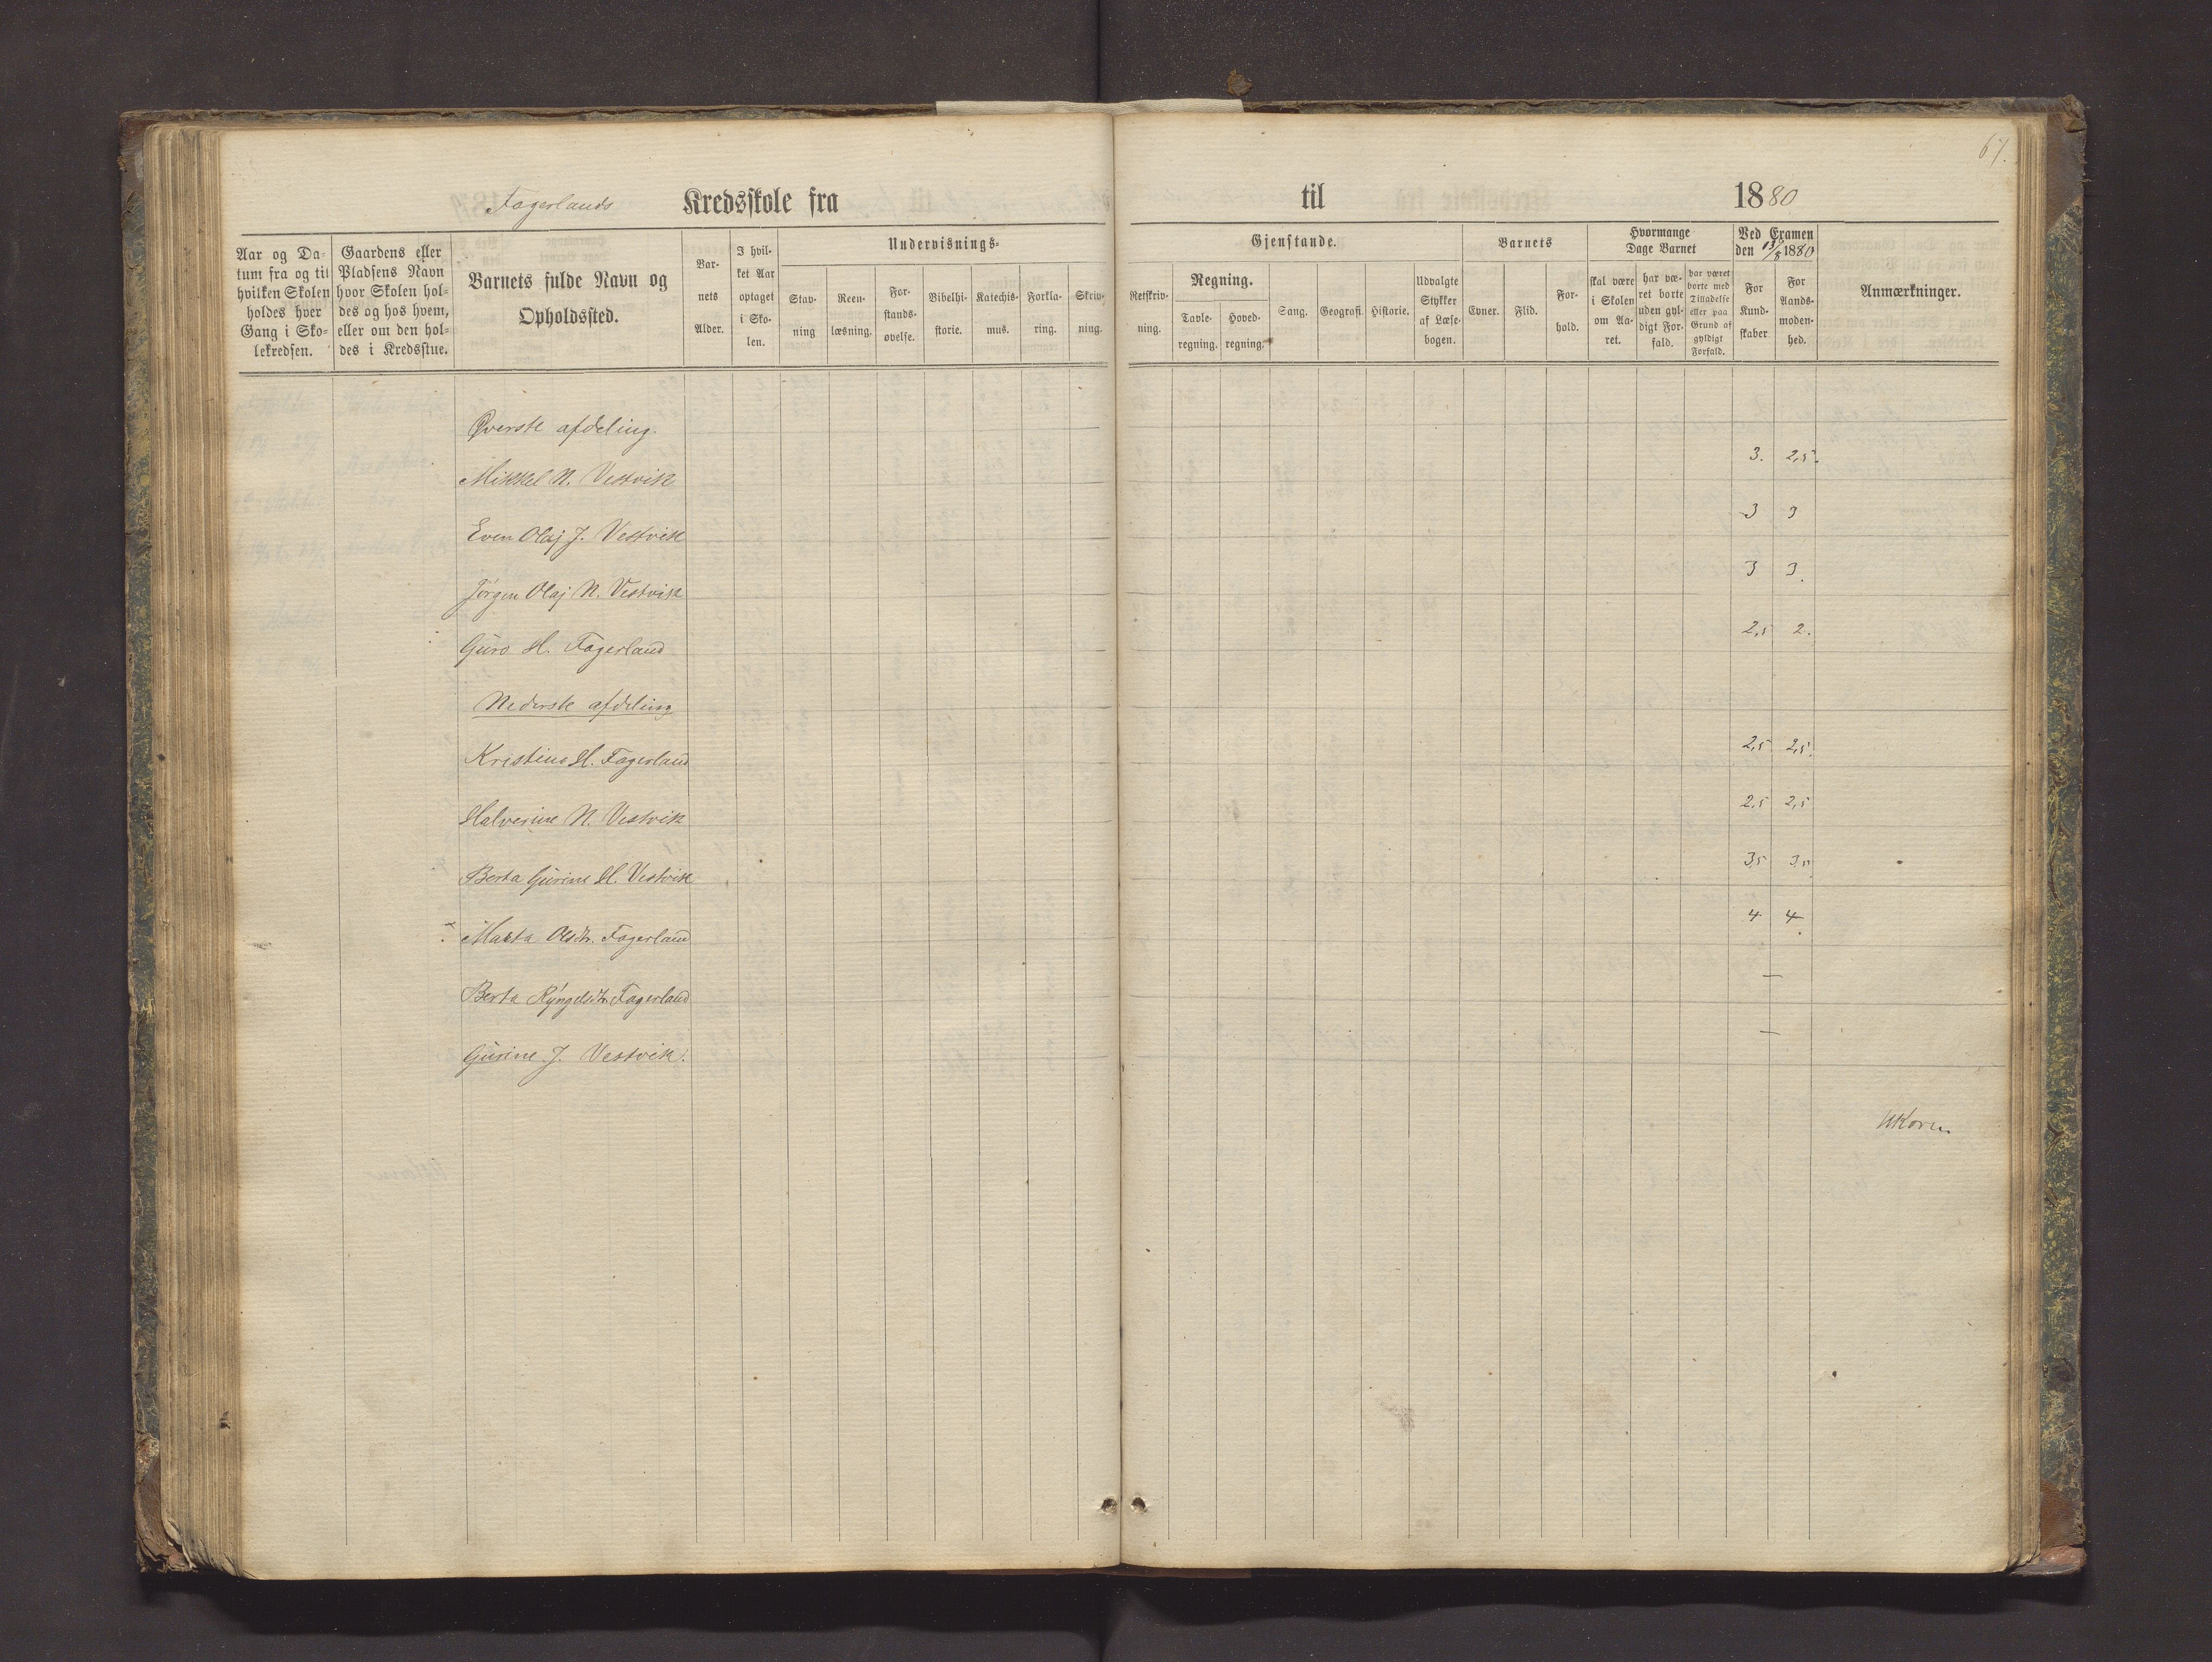 67.
Fagerlands Kredsskole fra til 1880
Aar og Da-
tum fra og til
hvilken Skolen
holdes hver
Gang i Sko-
lekredsen.
Gaardens eller
Pladsens Navn
hvor Skolen hol-
des og hos hvem,
eller om den hol-
des i Kredsstue.
Barnets fulde Navn og
Opholdssted.
Bar-
nets
Alder.
I hvil-
ket Aar
optaget
i Sko-
len.
Undervisnings-
Stav-
ning
Reen-
læsning.
For-
stands-
øvelse.
Bibelhi-
storie.
Katechis-
mus.
Forkla-
ring.
Skriv-
ning.
Gjenstande.
Retskriv-
ning.
Regning.
Tavle-
regning.
Hoved-
regning.
Sang.
Geografi.
Historie.
Udvalgte
Stykker
af Læse-
bogen.
Barnets
Evner.
Flid.
For-
hold.
Hvormange
Dage Barnet
skal være
i Skolen
om Aa-
ret.
har væ-
ret borte
uden gyl-
digt For-
fald.
har været
borte med
Tilladelse
eller paa
Grund af
gyldigt
Forfald.
Ved Examen
den 13/8 1880
For
Kund-
skaber
For
Aands-
moden-
hed.
Anmærkninger.
Øverste afdeling.
Mikkel N. Vestvik 3. 2,5.
Even Olaj J. Vestvik 3 3
Jörgen Olaj N. Vestvik 3 3.
Guro H. Fagerland 2,5 2.
Nederste afdeling
Kristine H. Fagerland 2,5 2,5.
Halverine N. Vestvik 2,5 2,5
Berta Gurine H. Vestvik 3,5 3,5.
Marta Olsdtr. Fagerland 4 4.
Berta Ryngelsdtr. Fagerland —
Gurine J. Vestvik. —